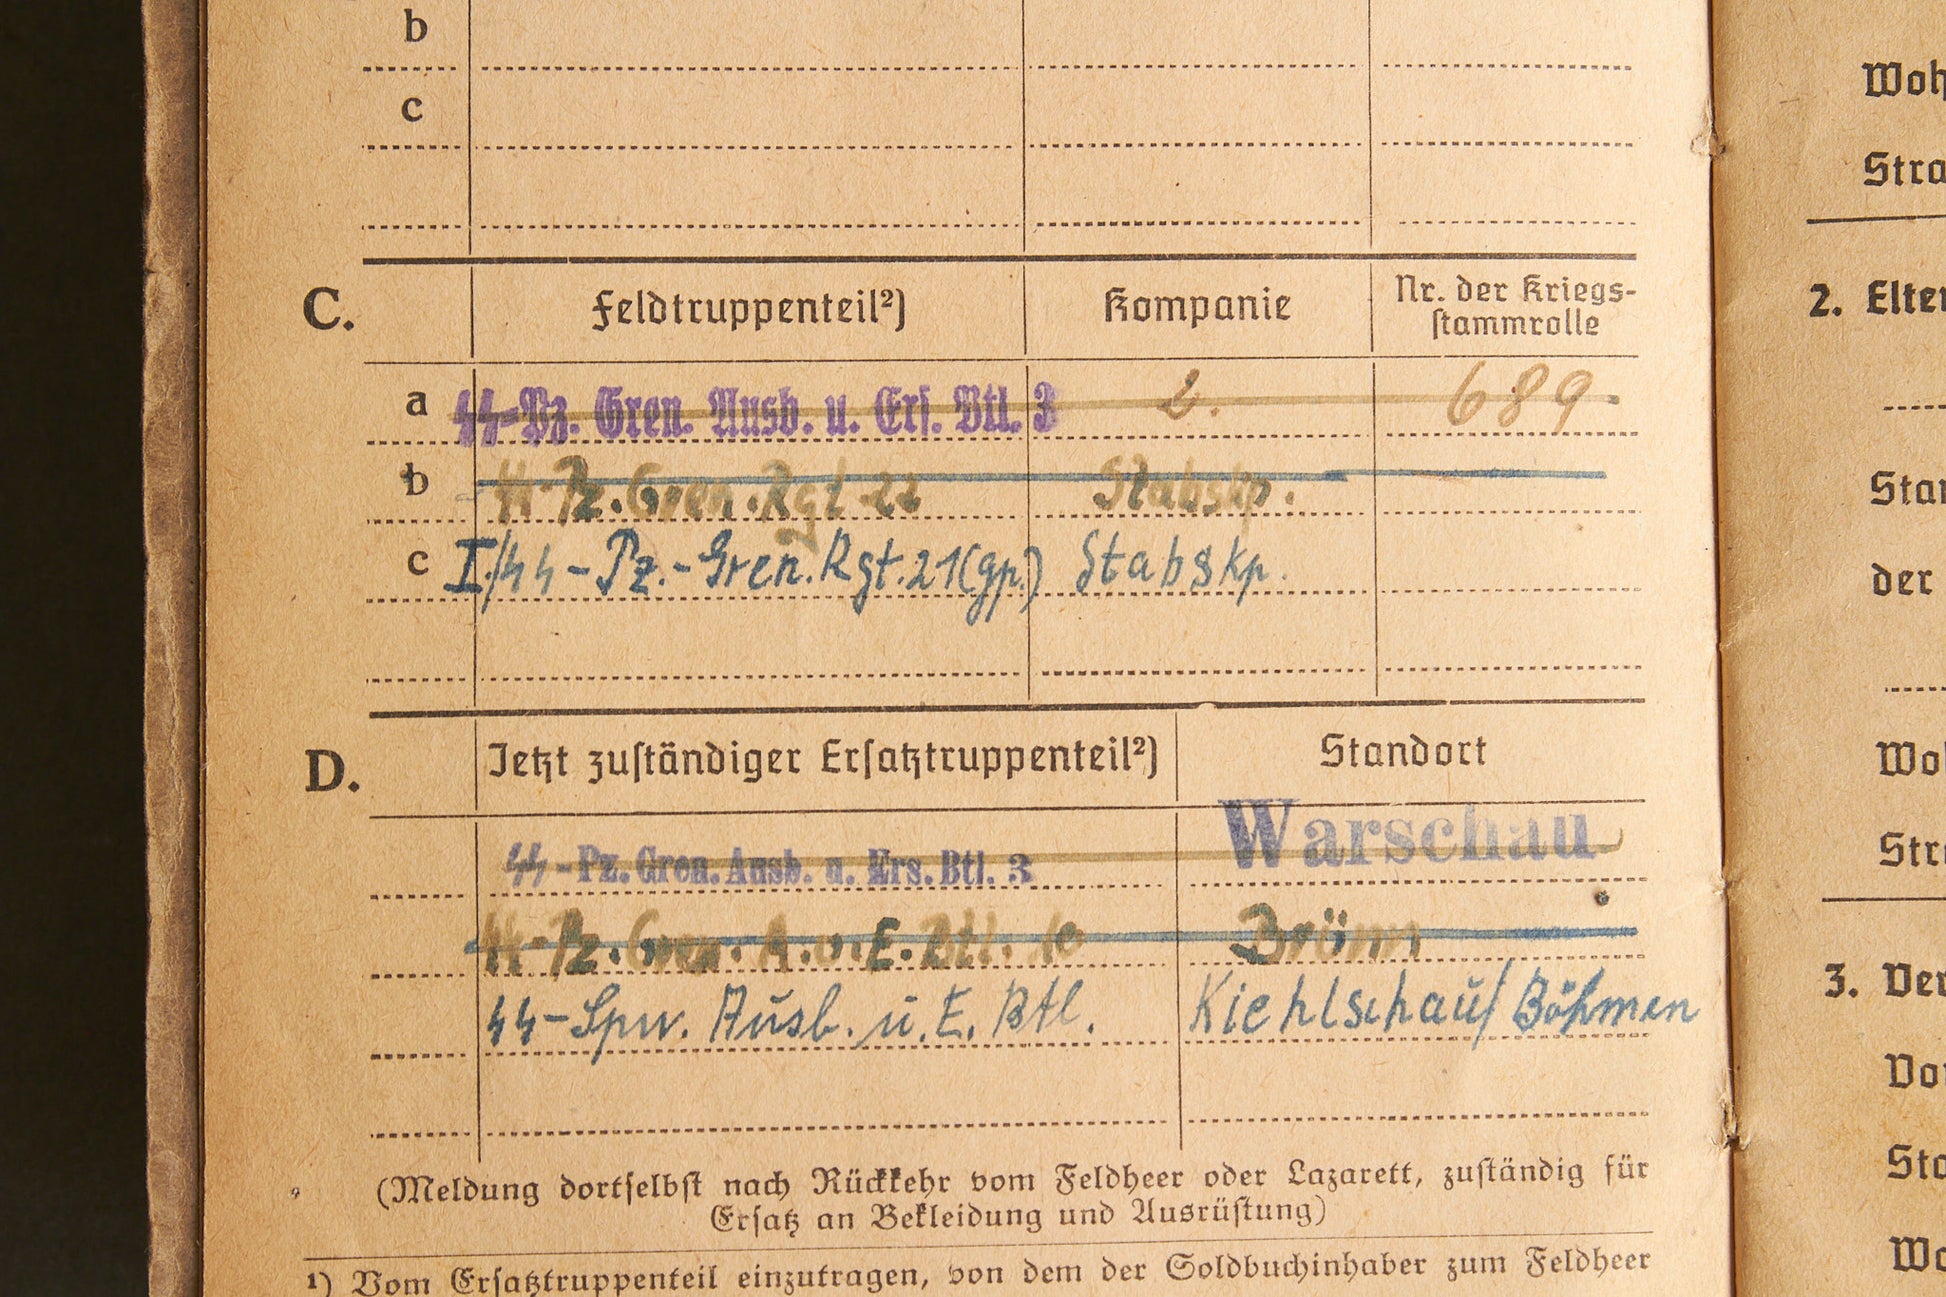 b
c
C. Feldtruppenteil²) Kompanie Nr. der Kriegs-
stammrolle
a SS-Pz. Gren. Ausb. u. Ers. Btl. 3 2. 689
b SS-Pz. Gren. Rgt Stabskp.
c I./SS-Pz.-Gren. Rgt. 21 (gp.) Stabskp.
D. Jetzt zuständiger Ersatztruppenteil²) Standort
SS-Pz. Gren. Ausb. u. Ers. Btl. 3 Warschau
SS-Pz. Gren. A. u. E. Btl. 10 Brünn
SS-Spw. Ausb. u. E. Btl. Kiehlschau/Böhmen
(Meldung dortselbst nach Rückkehr vom Feldheer oder Lazarett, zuständig für
Ersatz an Bekleidung und Ausrüstung)
¹) Vom Ersatztruppenteil einzutragen, von dem der Soldbuchinhaber zum Feldheer
Woh
Stra
2. Elter
der
Stra
3.